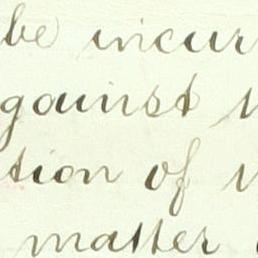 be incur
against
tion of
matter